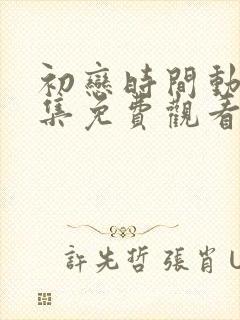 初戀時間動
集免費觀看
許先哲 張肖 U